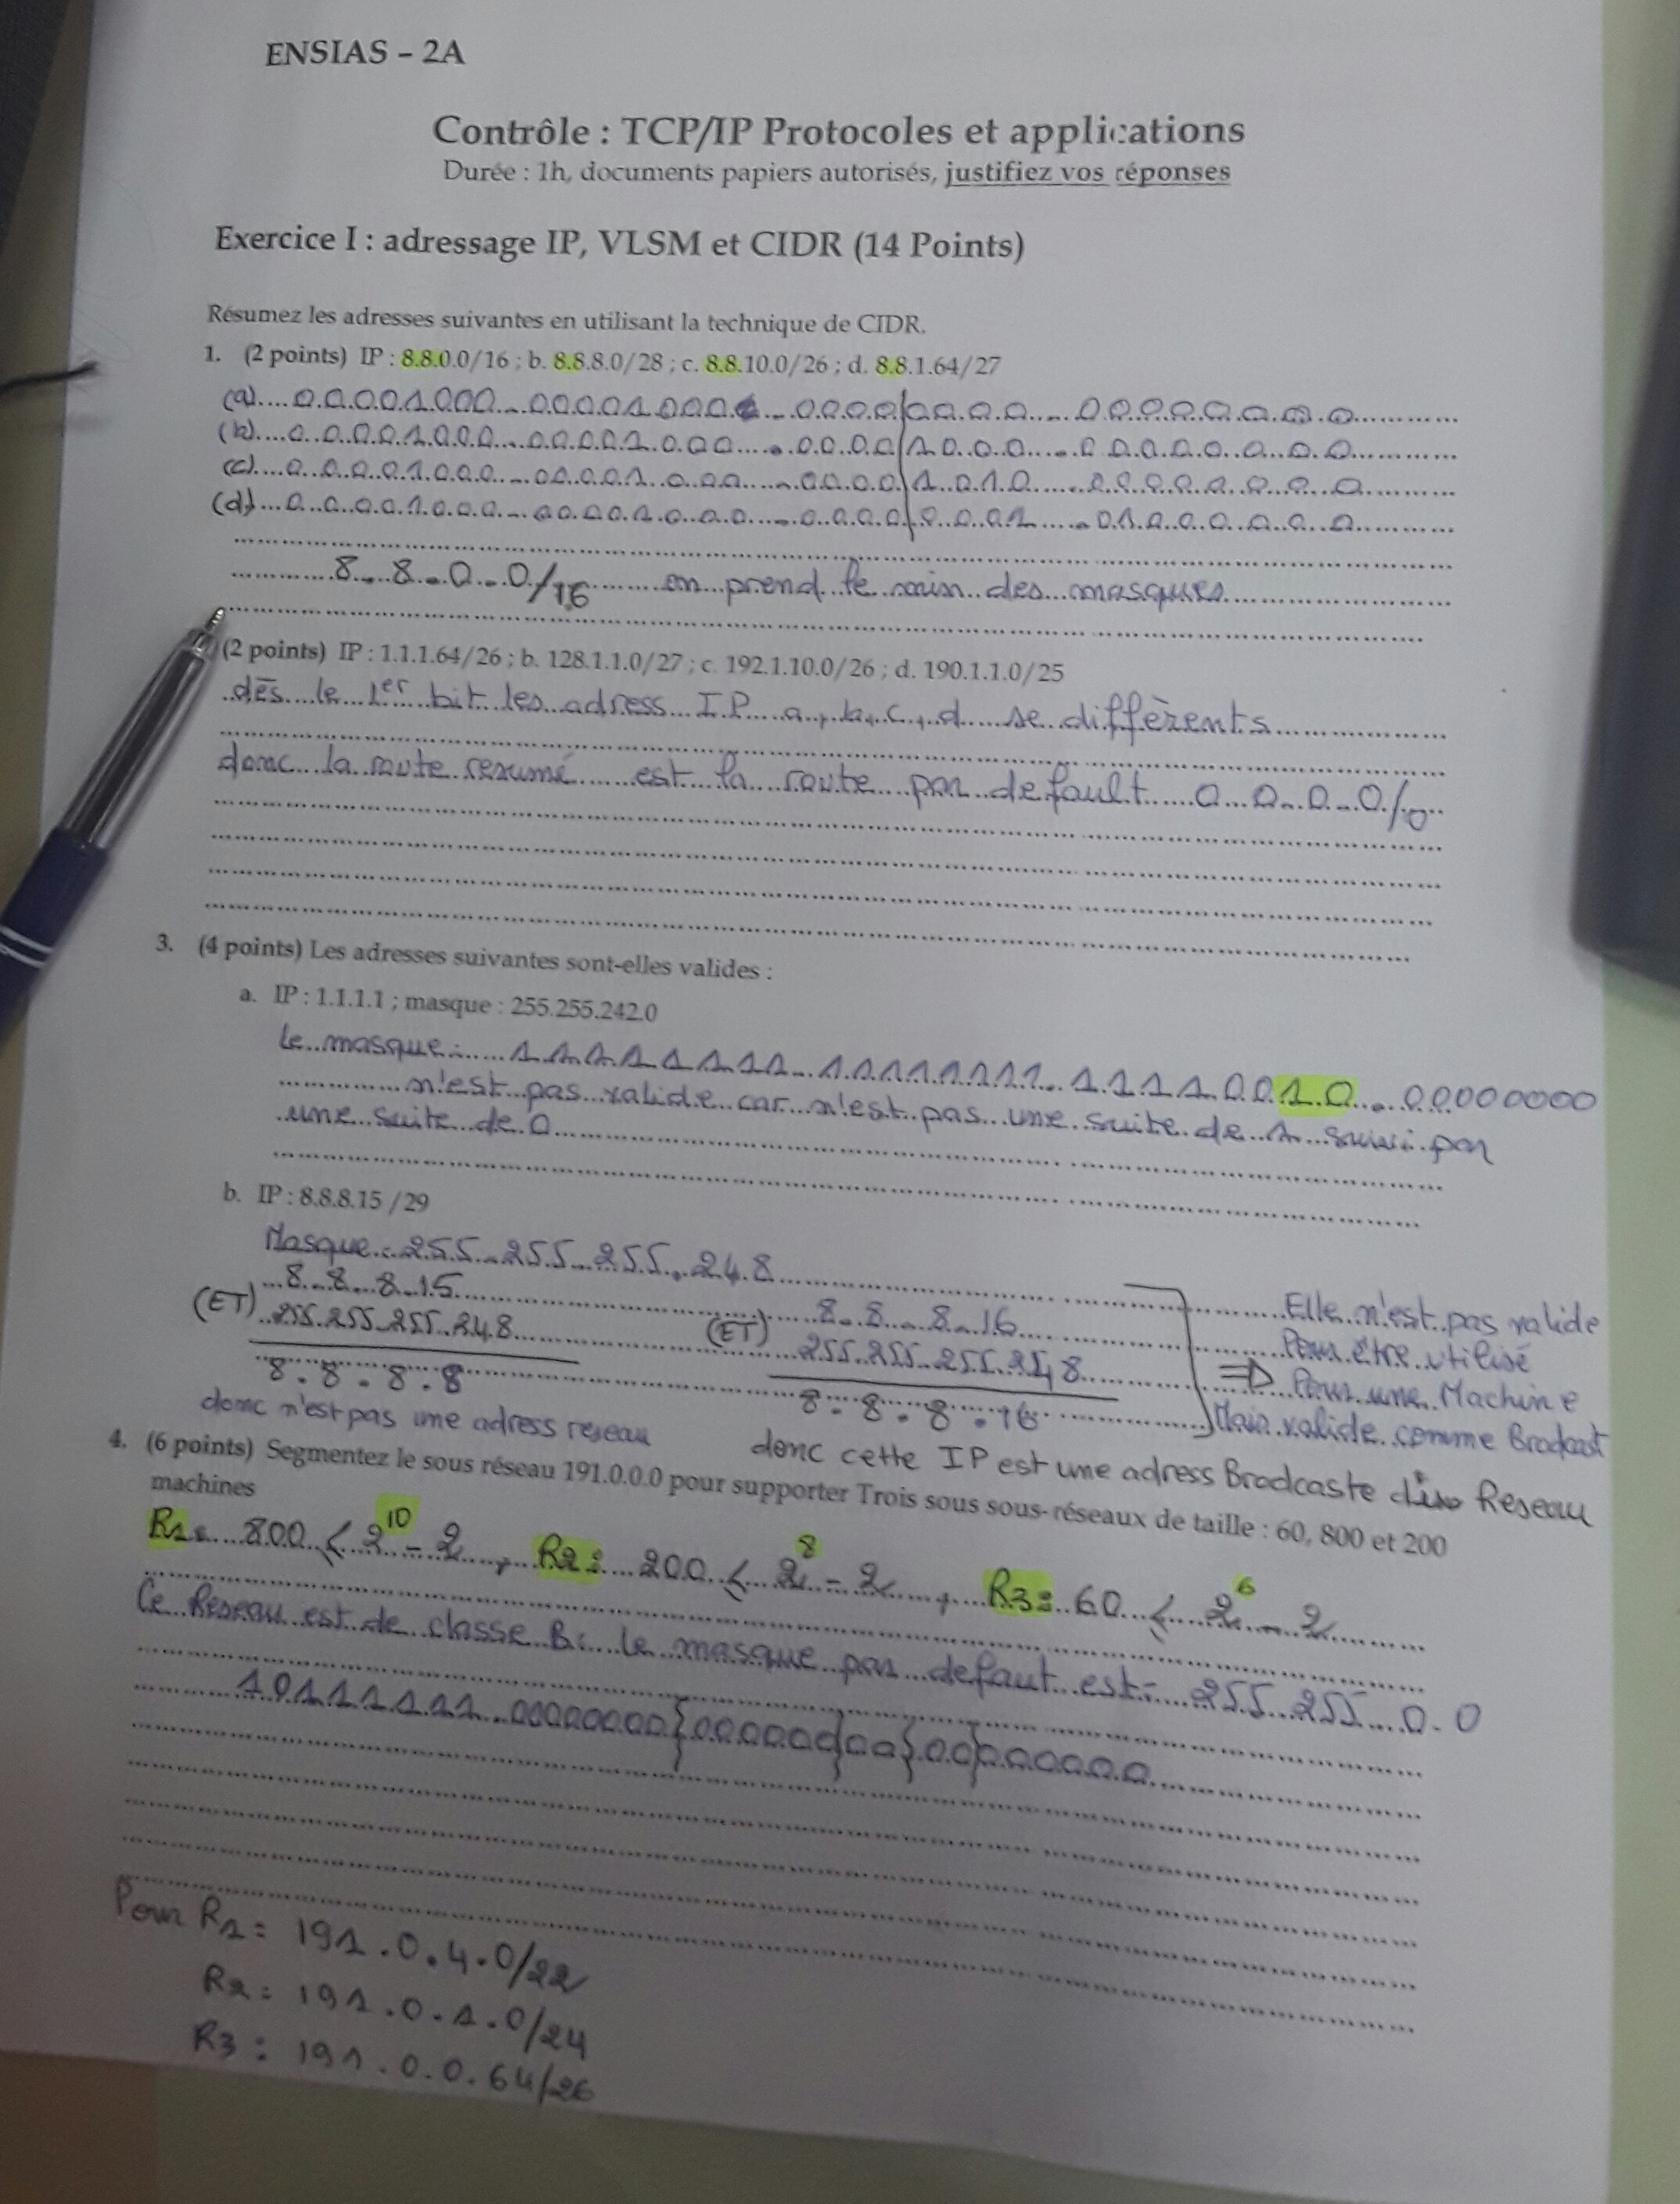 ENSIAS – 2A
Contrôle : TCP/IP Protocoles et applications
Durée : 1h, documents papiers autorisés, justifiez vos réponses
Exercice I : adressage IP, VLSM et CIDR (14 Points)
Résumez les adresses suivantes en utilisant la technique de CIDR.
1. (2 points) IP : 8.8.0.0/16 ; b. 8.8.8.0/28 ; c. 8.8.10.0/26 ; d. 8.8.1.64/27
(a) 00001000 . 00001000 . 0000|0000 . 00000000
(b) 00001000 . 00001000 . 0000|1000 . 00000000
(c) 00001000 . 00001000 . 0000|1010 . 00000000
(d) 00001000 . 00001000 . 0000|0001 . 01000000
8.8.0.0/16 on prend le min des masques
(2 points) IP : 1.1.1.64/26 ; b. 128.1.1.0/27 ; c. 192.1.10.0/26 ; d. 190.1.1.0/25
dès le 1er bit les adress IP a, b, c, d se diffèrents
donc la route resumé est la route par default 0.0.0.0/0
3. (4 points) Les adresses suivantes sont-elles valides :
a. IP : 1.1.1.1 ; masque : 255.255.242.0
le masque : 11111111.11111111.11110010.00000000
n'est pas valide car n'est pas une suite de 1 suivi par
une suite de 0
b. IP : 8.8.8.15 /29
Masque : 255.255.255.248
8.8.8.15
(ET) 255.255.255.248
8.8.8.8
donc n'est pas une adress reseau
8.8.8.16
(ET) 255.255.255.248
8.8.8.16
donc cette IP est une adress Brodcaste Reseau
Elle n'est pas valide
Pour être utilisé
⇒ Pour une Machine
Mais valide comme Brodcast
4. (6 points) Segmentez le sous réseau 191.0.0.0 pour supporter Trois sous sous-réseaux de taille : 60, 800 et 200
machines
R1 : 800 < 2^10 - 2, R2 : 200 < 2^8 - 2, R3 : 60 < 2^6 - 2
Ce Reseau est de classe B : le masque par defaut est : 255.255.0.0
10111111.00000000}000000}00}00}000000
Pour R1 : 191.0.4.0/22
R2 : 191.0.1.0/24
R3 : 191.0.0.64/26